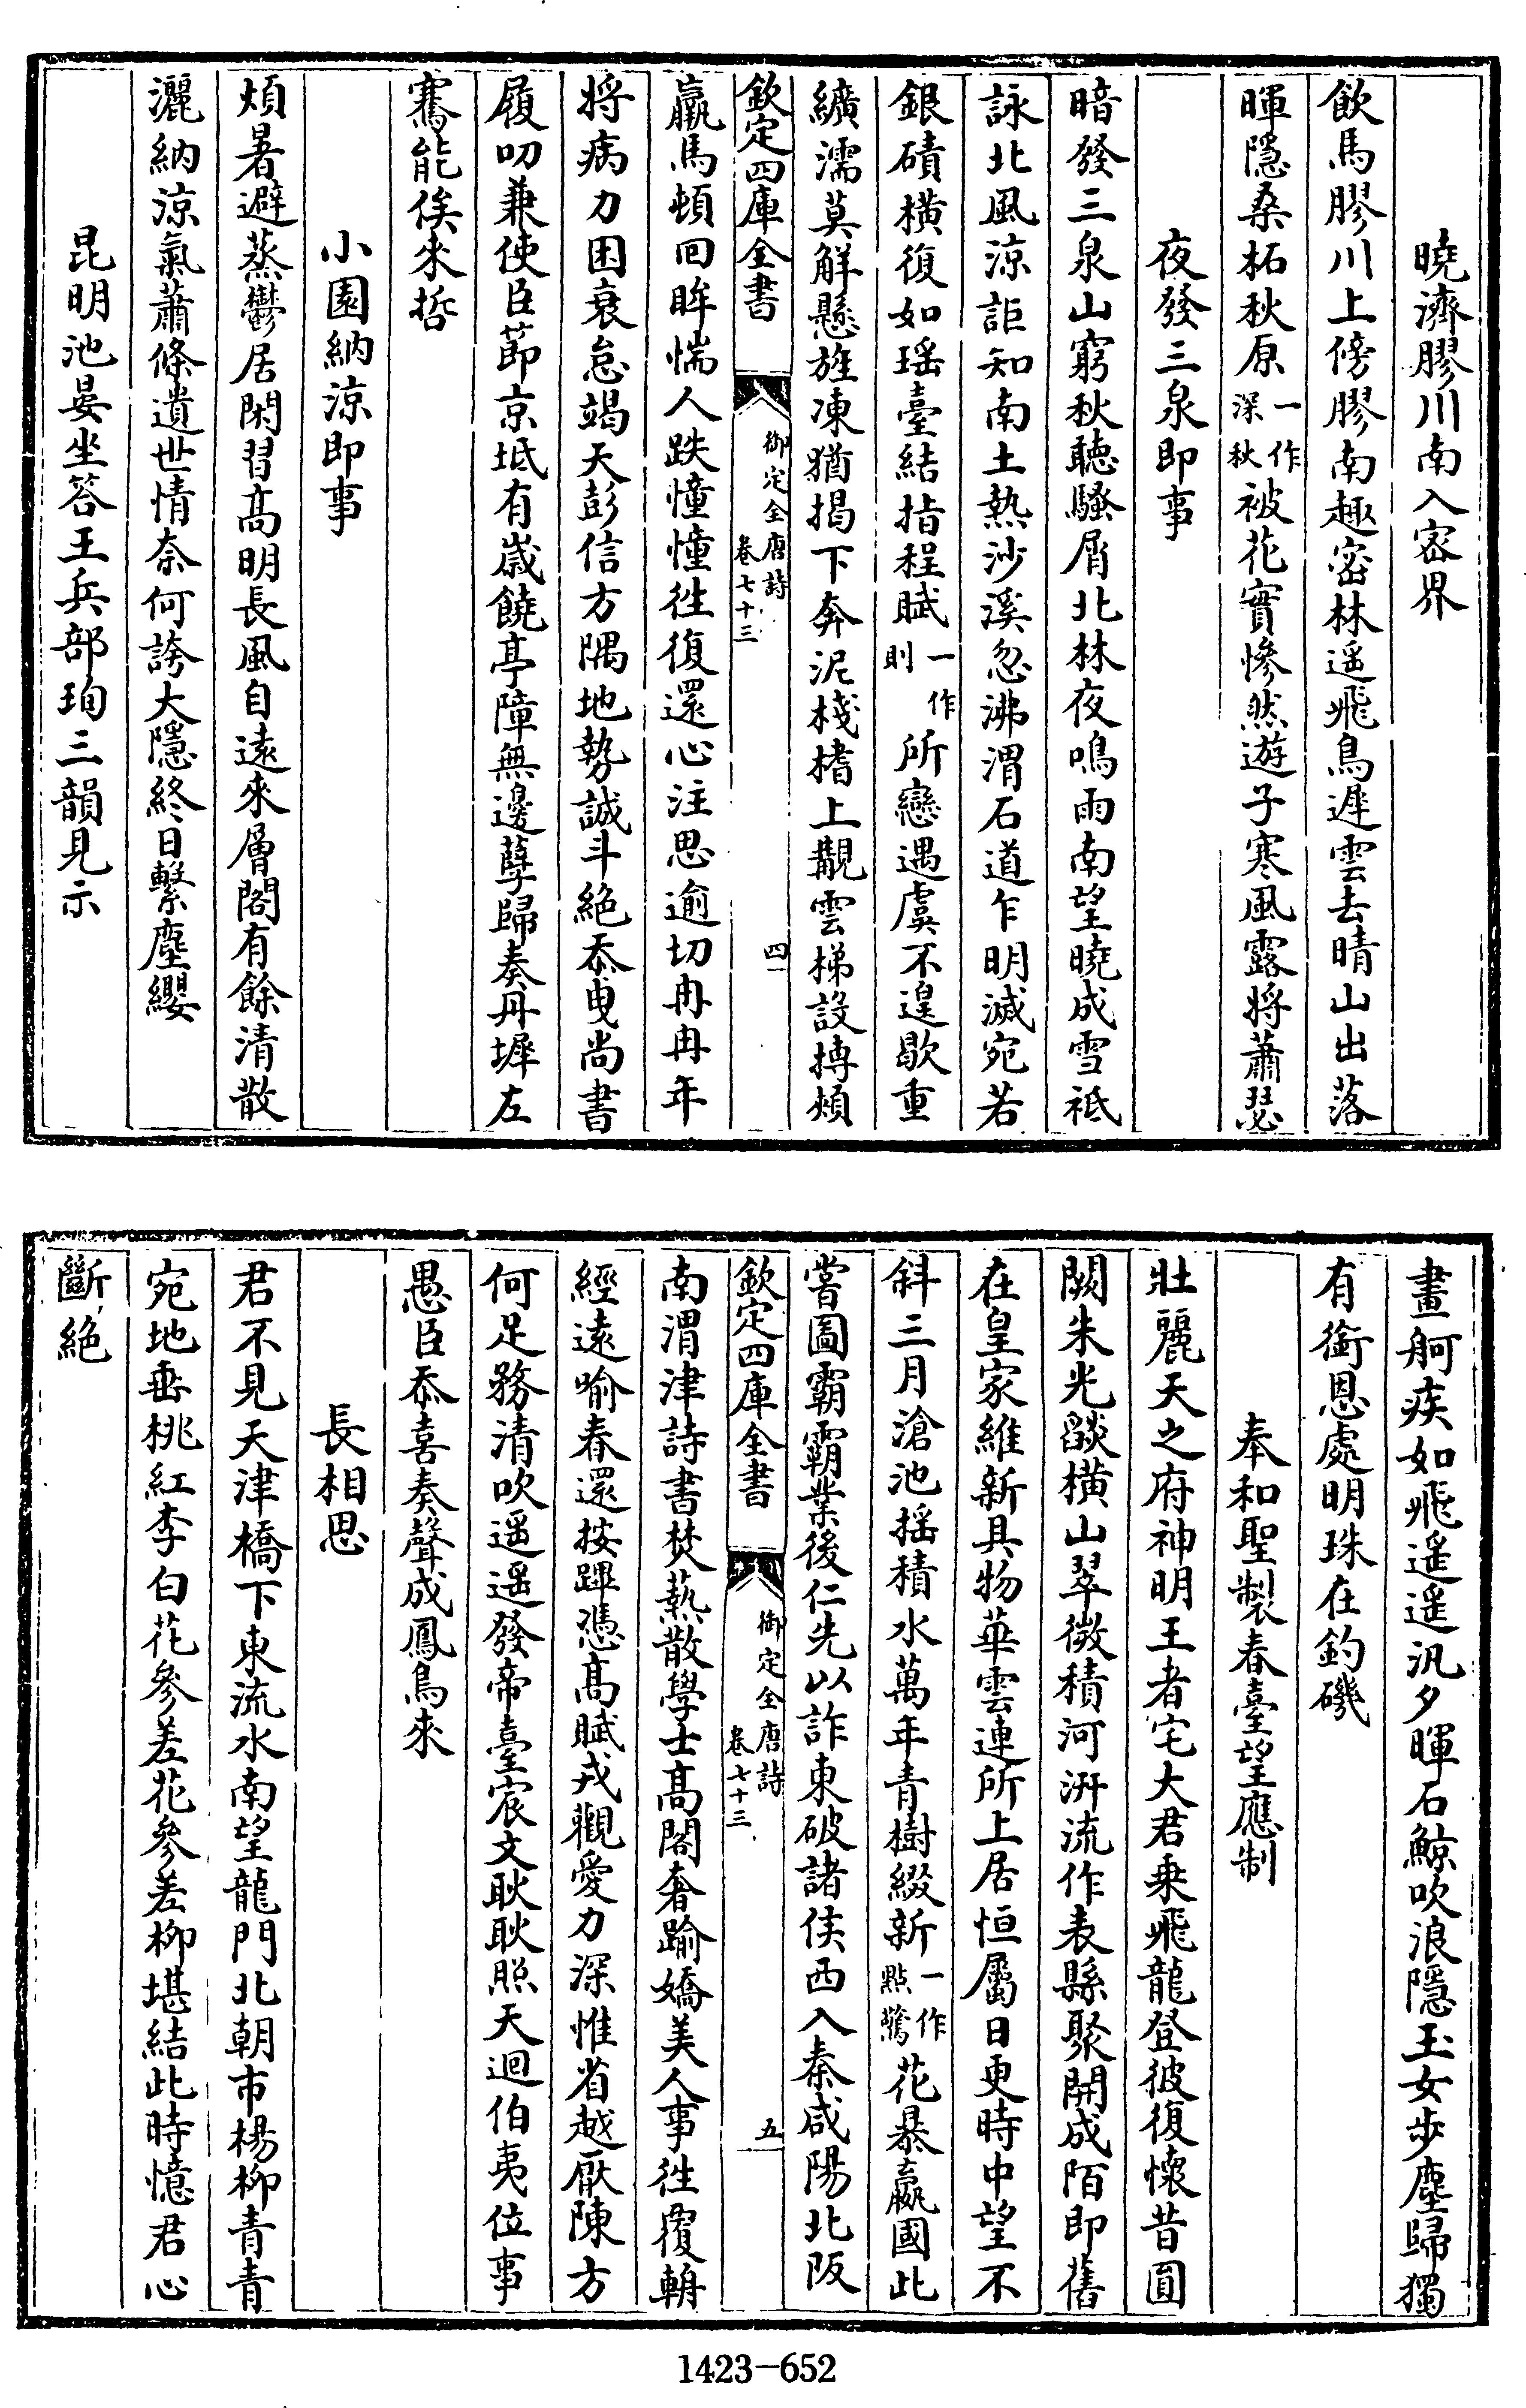 曉濟膠川南入密界
飲馬膠川上傍膠南趣密林遥飛鳥遲雲去晴山出落
暉隱桑柘秋原一作深秋被花實慘然遊子寒風露將蕭瑟
夜發三泉即事
暗發三泉山窮秋聽騷屑北林夜鳴雨南望曉成雪祗
詠北風涼詎知南土熱沙溪忽沸渭石道乍明滅宛若
銀磧横復如瑶臺結指程賦一作則所戀遇虞不遑歇重
纊濡莫解懸旌凍猶揭下奔泥棧榰上觀雲梯設摶頰
欽定四庫全書
御定全唐詩
卷七十三
四
羸馬頓回眸惴人跌憧憧徃復還心注思逾切冉冉年
將病力困衰怠竭天彭信方隅地勢誠斗絶忝曳尚書
履叨兼使臣節京坻有歳饒亭障無邊孽歸奏丹墀左
騫能俟來哲
小園納涼即事
煩暑避蒸鬱居閑習髙明長風自遠來層閣有餘清散
灑納涼氣蕭條遺世情奈何誇大隱終日繫塵纓
昆明池晏坐答王兵部珣三韻見示
畫舸疾如飛遥遥汎夕暉石鯨吹浪隱玉女步塵歸獨
有銜恩處明珠在釣磯
奉和聖製春臺望應制
壯麗天之府神明王者宅大君乗飛龍登彼復懷昔圓
闕朱光燄横山翠微積河汧流作表縣聚開成陌即舊
在皇家維新具物華雲連所上居恒屬日更時中望不
斜三月滄池摇積水萬年青樹綴新一作點驚花暴嬴國此
嘗圖霸霸業後仁先以詐東破諸侯西入秦咸陽北阪
欽定四庫全書
御定全唐詩
卷七十三
五
南渭津詩書焚爇散學士髙閣奢踰嬌美人事徃覆輈
經遠喻春還按蹕憑髙賦戎觀愛力深惟省越厭陳方
何足務清吹遥遥發帝臺宸文耿耿照天迴伯夷位事
愚臣忝喜奏聲成鳳鳥來
長相思
君不見天津橋下東流水南望龍門北朝市楊柳青青
宛地垂桃紅李白花參差花參差柳堪結此時憶君心
斷絶
1423-652